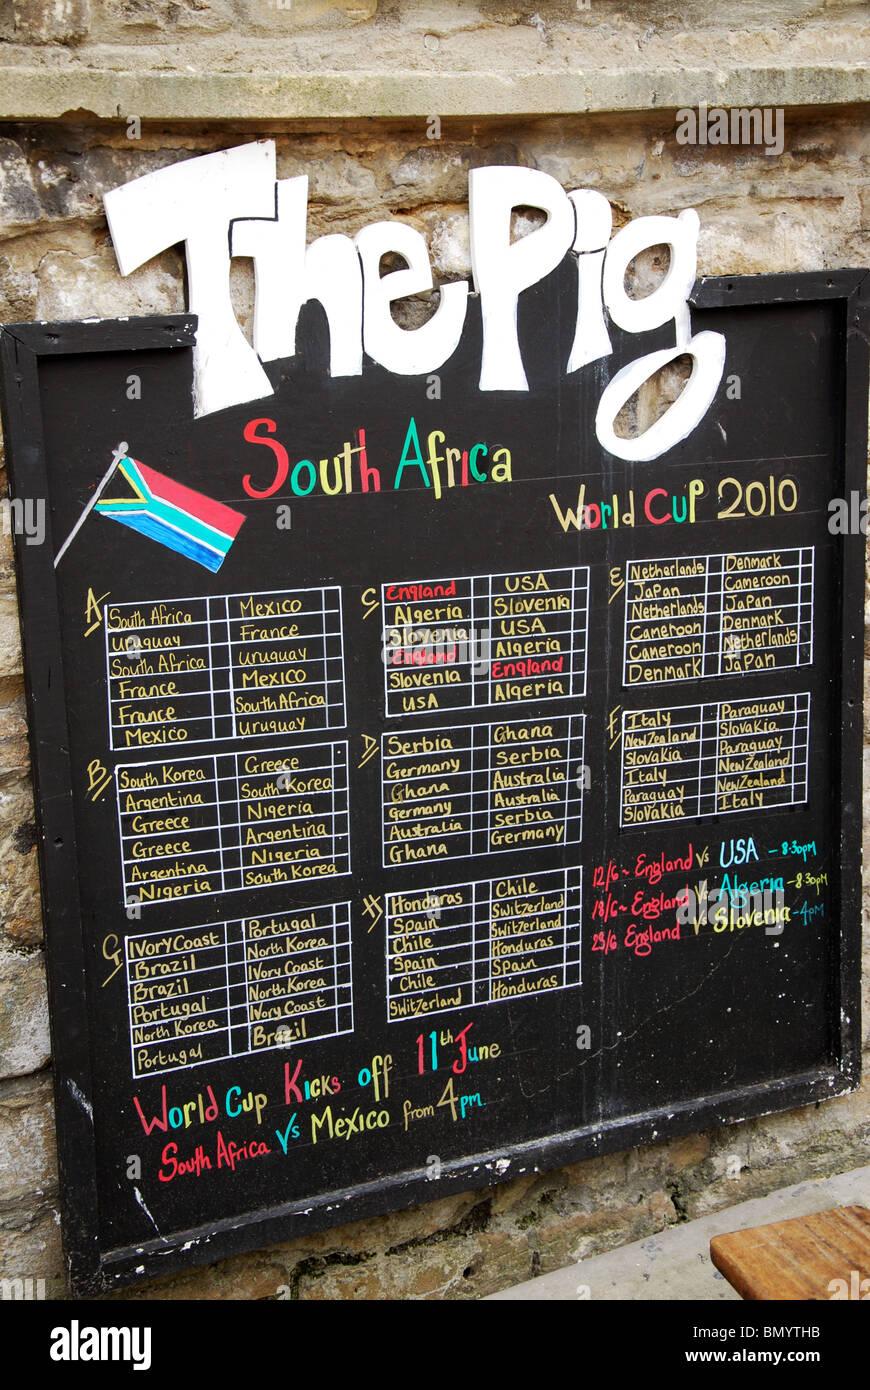 The Pig
South Africa
World Cup 2010
A
South Africa Mexico
Uruguay France
South Africa Uruguay
France Mexico
France South Africa
Mexico Uruguay
B
South Korea Greece
Argentina South Korea
Greece Nigeria
Greece Argentina
Argentina Nigeria
Nigeria South Korea
G
Ivory Coast Portugal
Brazil North Korea
Brazil Ivory Coast
Portugal North Korea
North Korea Ivory Coast
Portugal Brazil
C
England USA
Algeria Slovenia
Slovenia USA
England Algeria
Slovenia England
USA Algeria
D
Serbia Ghana
Germany Serbia
Ghana Australia
Germany Australia
Australia Serbia
Ghana Germany
H
Honduras Chile
Spain Switzerland
Chile Switzerland
Spain Honduras
Chile Spain
Switzerland Honduras
E
Netherlands Denmark
Japan Cameroon
Netherlands Japan
Cameroon Denmark
Cameroon Netherlands
Denmark Japan
F
Italy Paraguay
New Zealand Slovakia
Slovakia Paraguay
Italy New Zealand
Paraguay New Zealand
Slovakia Italy
12/6 ~ England Vs USA - 8.30pm
18/6 - England Vs Algeria - 8.30pm
23/6 England Vs Slovenia - 4pm
World Cup Kicks off 11th June
South Africa Vs Mexico from 4pm.
alamy
Image ID: BMYTHB
www.alamy.com